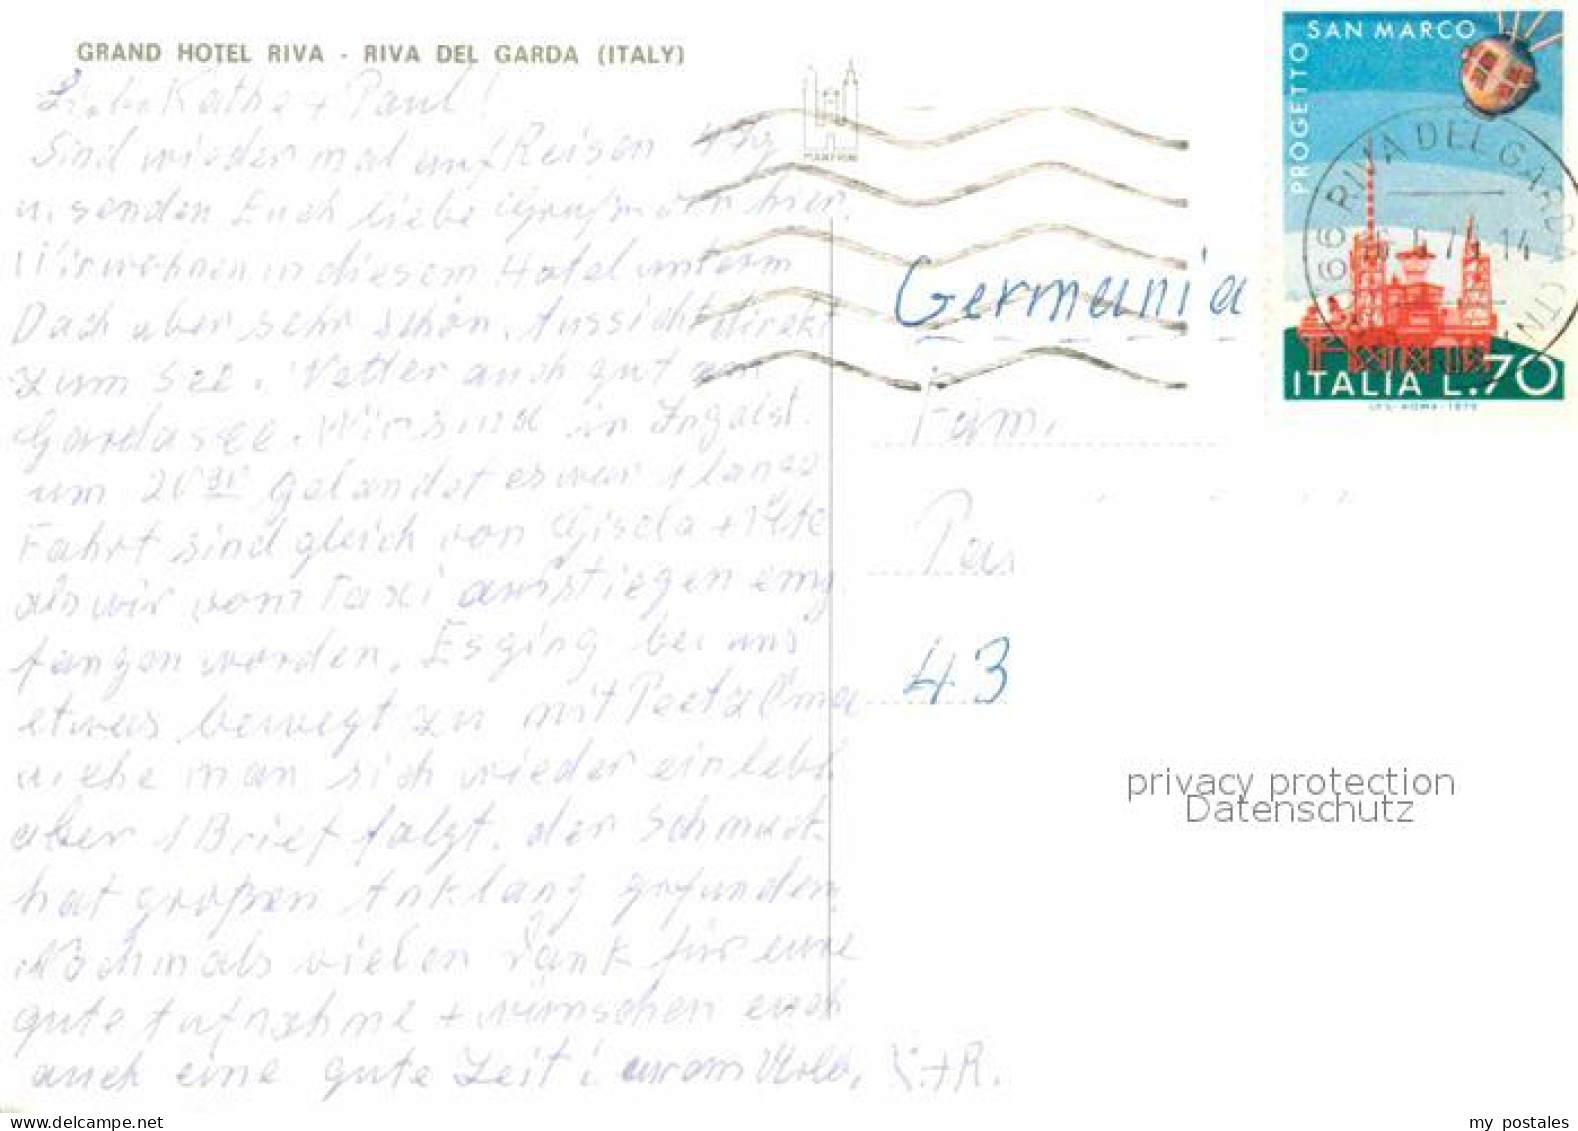 GRAND HOTEL RIVA - RIVA DEL GARDA (ITALY)
Käthe + Paul!
Sind wieder mal auf Reisen
u. senden Euch liebe hier.
Wir wohnen in diesem Hotel unterm
Dach aber sehr schön. Aussicht direkt
zum See. Wetter auch gut am
Gardasee. Wir sind in
um 20 30 gelandet es war 1 lange
Fahrt sind gleich von Gisela +
als wir vom Taxi ausstiegen emp
fangen worden. Es ging bei uns
etwas bewegt zu mit Oma
ehe man sich wieder einlebt
aber 1 Brief folgt. der Schmuck
hat großen Anklang gefunden.
Nochmals vielen Dank für eure
gute Aufnahme + wünschen euch
auch eine gute Zeit i. eurem Url. +R.
MANFRINI
PROGETTO SAN MARCO
ITALIA L.70
I.P.S.-ROMA-1975
66 RIVA DEL GARDA (TN)
14
Germania
Fam.
43
privacy protection
Datenschutz
my postales